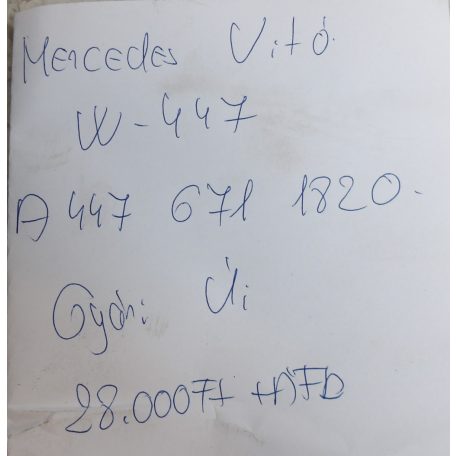 Mercedes Vitó
W-447
A 447 671 1820
Gyári Új
28.000Ft +ÁFA